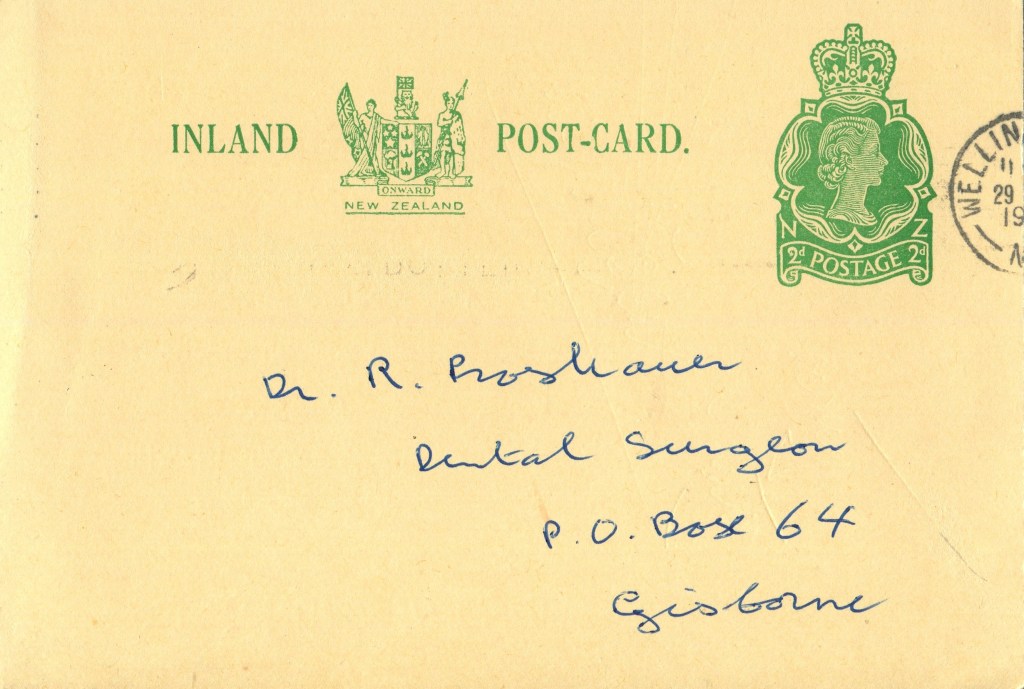 INLAND POST-CARD.
ONWARD
NEW ZEALAND
N Z
2d POSTAGE 2d
WELLIN
11
29
19
N
Dr. R.
Dental Surgeon
P.O. Box 64
Gisborne